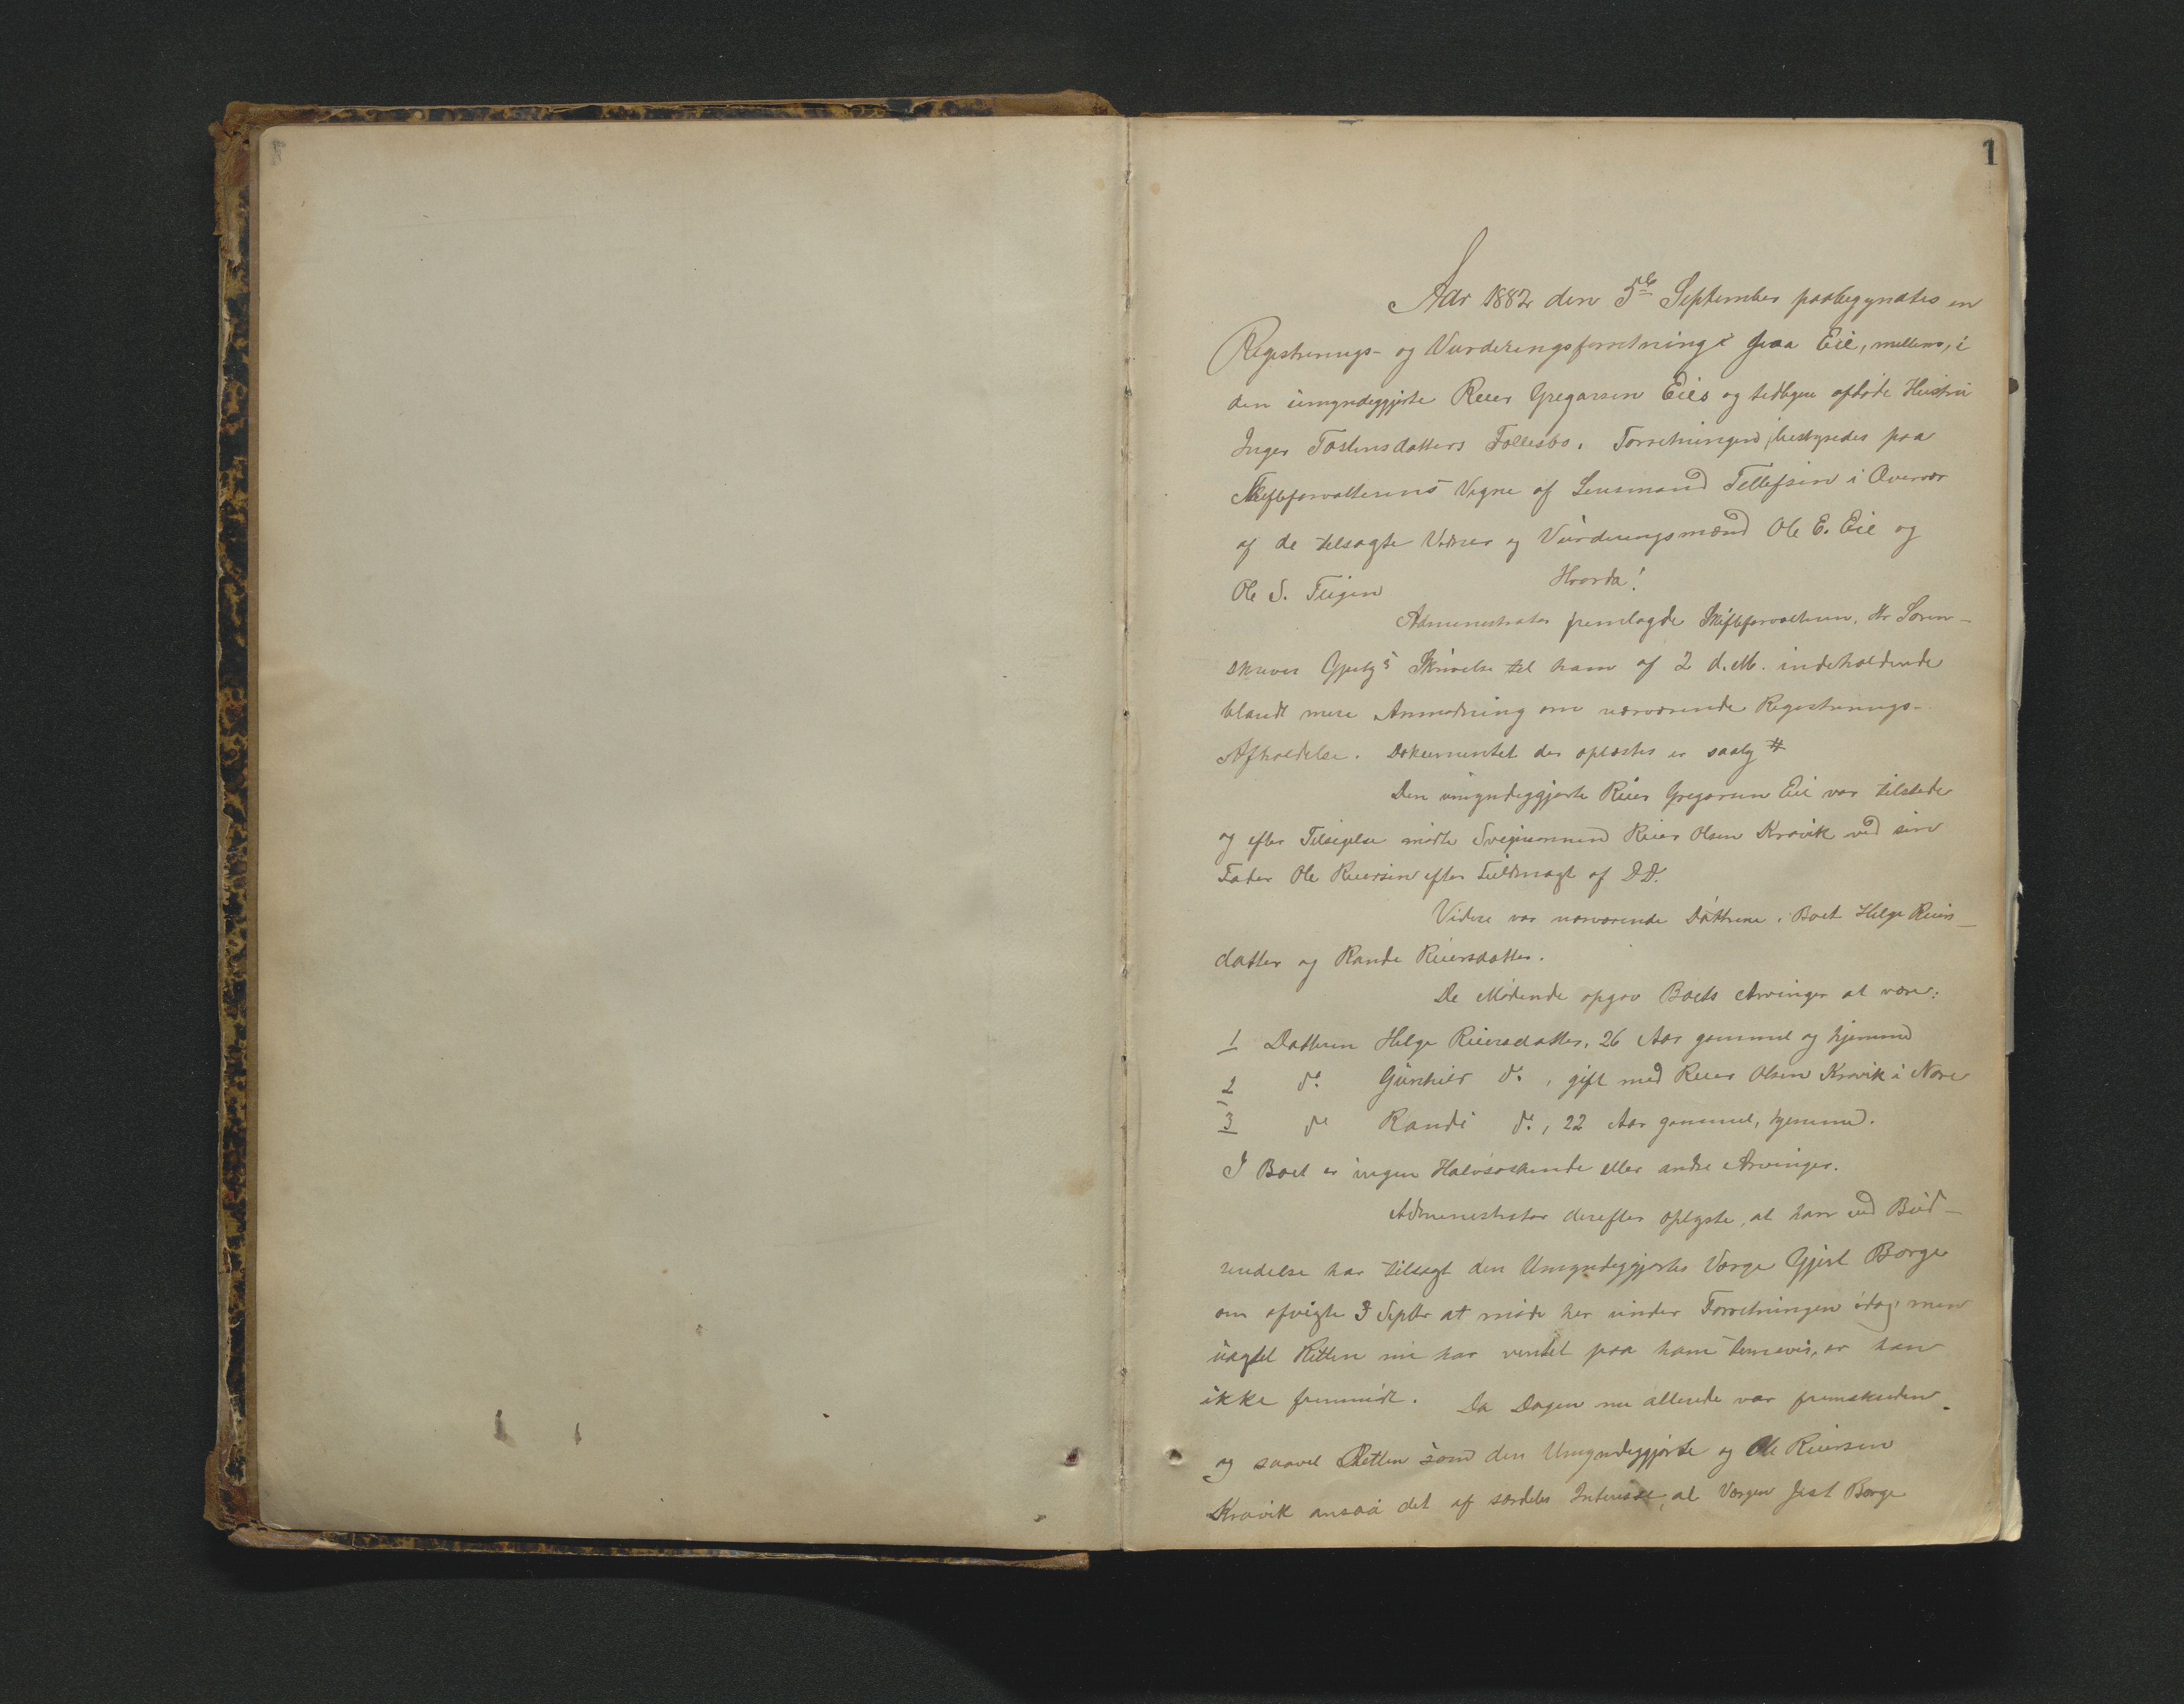 1
Aar 1882 den 5te September paabegyndtes en
Registrerings- og Vurderingsforretning paa Eie, mellem, i
den umyndiggjorte Reier Gregarsen Eies og tidligere afdøde Hustru
Inger Tostensdatters Fællesbo. Forretningen bestyredes paa
Skifteforvalterens Vegne af Lensmand Tellefsen i Overvær
af de tilsagte Vidner og Vurderingsmænd Ole E. Eie og
Ole S. Teigen Hvorda!
Administrator fremlagde Skifteforvalteren, Hr Soren-
skriver Skrivelse til ham af 2 d. M. indeholdende
blandt mere Anmodning om nærværende Registrerings-
Afholdelse. Dokumentet der oplæstes er saalg #
Den umyndiggjorte Reier Gregarsen Eie var tilstede
og efter Tilsigelse mødte Svigersønnen Reier Olsen Kravik ved sin
Fader Ole Reiersen efter Fuldmagt af D.D.
Videre var nærværende Døttrene i Boet Helge Reiers-
datter og Rande Reiersdatter.
De Mødende opgav Boets Arvinger at være:
1 Datteren Helge Reiersdatter, 26 Aar gammel og hjemme
2 do Gunhild do, gift med Reier Olsen Kravik i Nore
3 do Randi do, 22 Aar gammel, hjemme.
I Boet er ingen Halvsøskende eller andre Arvinger.
Administrator derefter oplyste, at han ved Bud-
sendelse har tilsagt den Umyndiggjortes Værge Gjest Borge
om afvigte 3 Septbr at møde her under Forretningen idag, men
uagtet Retten nu har ventet paa ham timevis, er han
ikke fremmødt. Da Dagen nu allerede var fremskreden
og saavel Retten som den Umyndiggjorte og Ole Reiersen
Kravik ansaa det af særdeles Interesse, at Værgen Jest Borge